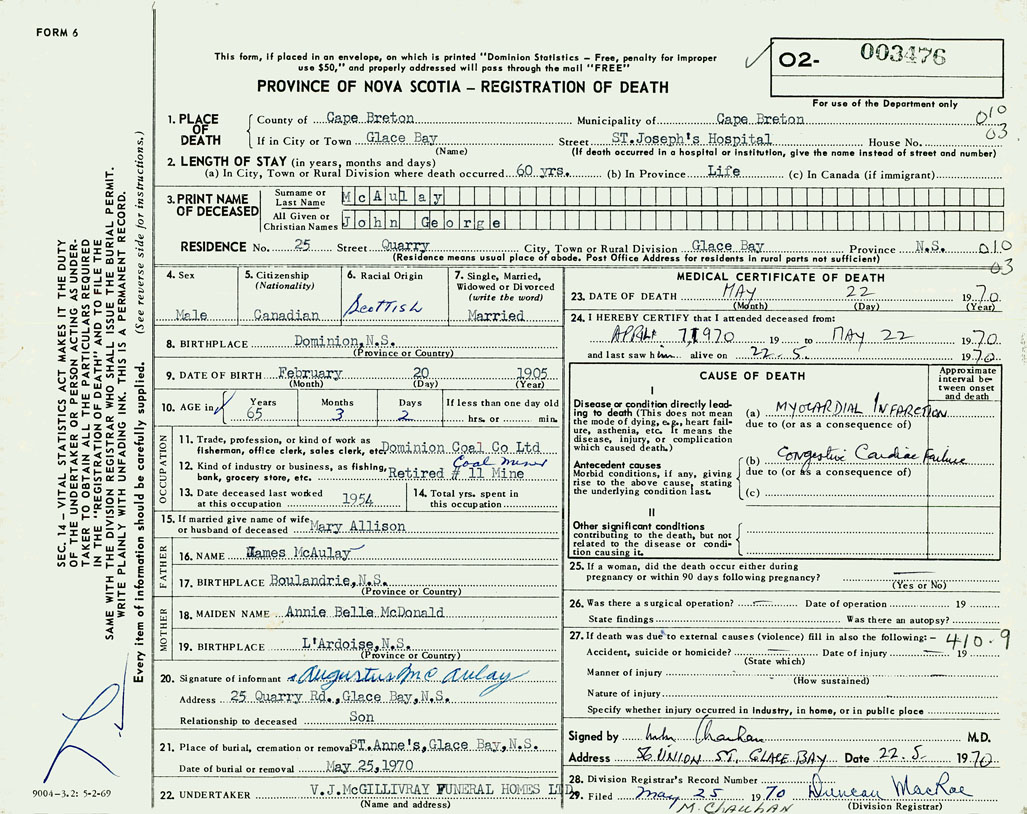 FORM 6
This form, if placed in an envelope, on which is printed "Dominion Statistics — Free, penalty for improper
use $50," and properly addressed will pass through the mail "FREE"
PROVINCE OF NOVA SCOTIA – REGISTRATION OF DEATH
02- 003476
For use of the Department only
010
03
1. PLACE OF DEATH
County of Cape Breton Municipality of Cape Breton
If in City or Town Glace Bay Street ST.Joseph's Hospital House No.
(Name) (If death occurred in a hospital or institution, give the name instead of street and number)
2. LENGTH OF STAY (in years, months and days)
(a) In City, Town or Rural Division where death occurred 60 yrs. (b) In Province Life (c) In Canada (if immigrant)
3. PRINT NAME OF DECEASED
Surname or Last Name McAulay
All Given or Christian Names John George
RESIDENCE No. 25 Street Quarry City, Town or Rural Division Glace Bay Province N.S.
(Residence means usual place of abode. Post Office Address for residents in rural parts not sufficient)
010
03
4. Sex
Male
5. Citizenship
(Nationality)
Canadian
6. Racial Origin
Scottish
7. Single, Married,
Widowed or Divorced
(write the word)
Married
8. BIRTHPLACE Dominion,N.S.
(Province or Country)
9. DATE OF BIRTH February 20 1905
(Month) (Day) (Year)
10. AGE in
Years Months Days If less than one day old
65 3 2 hrs. or min.
OCCUPATION
11. Trade, profession, or kind of work as
fisherman, office clerk, sales clerk, etc. Dominion Coal Co Ltd
12. Kind of industry or business, as fishing, Coal Miner
bank, grocery store, etc. Retired # 11 Mine
13. Date deceased last worked
at this occupation 1954
14. Total yrs. spent in
this occupation
15. If married give name of wife
or husband of deceased Mary Allison
FATHER
16. NAME James McAulay
17. BIRTHPLACE Boulandrie,N.S.
(Province or Country)
MOTHER
18. MAIDEN NAME Annie Belle McDonald
19. BIRTHPLACE L'Ardoise,N.S.
(Province or Country)
20. Signature of informant Augustus Mc Aulay
Address 25 Quarry Rd.,Glace Bay,N.S.
Relationship to deceased Son
21. Place of burial, cremation or removal ST.Anne's,Glace Bay,N.S.
Date of burial or removal May 25,1970
22. UNDERTAKER V.J.McGILLIVRAY FUNERAL HOMES LTD.
(Name and address)
MEDICAL CERTIFICATE OF DEATH
23. DATE OF DEATH MAY 22 1970
(Month) (Day) (Year)
24. I HEREBY CERTIFY that I attended deceased from:
APRIL 7, 1970 19 to MAY 22 1970
and last saw him alive on 22.5. 1970
CAUSE OF DEATH
Approximate
interval be-
tween onset
and death
I
Disease or condition directly lead-
ing to death (This does not mean
the mode of dying, e.g., heart fail-
ure, asthenia, etc. It means the
disease, injury, or complication
which caused death.)
(a) MYOCARDIAL INFARCTION
due to (or as a consequence of)
Antecedent causes
Morbid conditions, if any, giving
rise to the above cause, stating
the underlying condition last.
(b) Congestive Cardiac Failure
due to (or as a consequence of)
(c)
II
Other significant conditions
contributing to the death, but not
related to the disease or condi-
tion causing it.
25. If a woman, did the death occur either during
pregnancy or within 90 days following pregnancy?
(Yes or No)
26. Was there a surgical operation? Date of operation 19
State findings Was there an autopsy?
27. If death was due to external causes (violence) fill in also the following:– 410.9
Accident, suicide or homicide? Date of injury 19
(State which)
Manner of injury
(How sustained)
Nature of injury
Specify whether injury occurred in Industry, in home, or in public place
Signed by Chauhan M.D.
Address 56 UNION ST. GLACE BAY Date 22.5 1970
28. Division Registrar's Record Number
29. Filed May 25 1970 Duncan MacRae
M. CHAUHAN (Division Registrar)
SEC. 14 – VITAL STATISTICS ACT MAKES IT THE DUTY
OF THE UNDERTAKER OR PERSON ACTING AS UNDER-
TAKER TO OBTAIN ALL THE PARTICULARS REQUIRED
IN THE "REGISTRATION OF DEATH" AND TO FILE THE
SAME WITH THE DIVISION REGISTRAR WHO SHALL ISSUE THE BURIAL PERMIT.
WRITE PLAINLY WITH UNFADING INK. THIS IS A PERMANENT RECORD.
Every item of information should be carefully supplied. (See reverse side for instructions.)
9004-3.2: 5-2-69